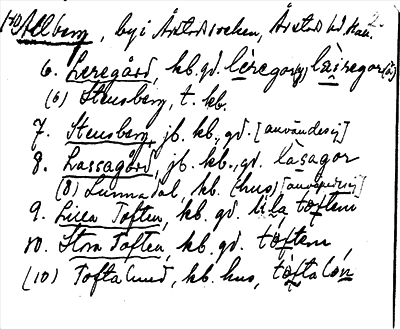 Allberg, by i Årstads socken, Årstads hd. Hall. 2.
6. Leregård, kb. gd. lèregoṛ, lạ̈iregoṛ(a)
(6) Stensberg, t. kb.
7. Stensberg, jb. kb., gd. [användes ej]
8. Lassagård, jb. kb., gd. làsagor
(8) Lunnadal, kb. (hus) [användes ej]
9. Lilla Toften, kb. gd. lìla töftem
10. Stora Toften, kb. gd. töftem
(10) Toftalund, kb. hus, töftalón